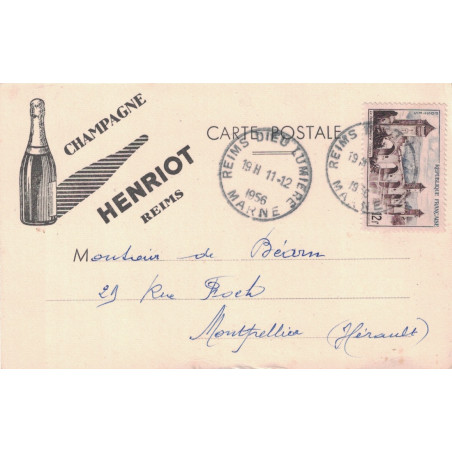 CHAMPAGNE
HENRIOT
REIMS
CARTE POSTALE
REIMS DIEU LUMIERE
19 H 11-12
1956
MARNE
REIMS
19
MARNE
REPUBLIQUE FRANÇAISE
12F
Monsieur de Béarn
29 Rue Foch
Montpellier (Hérault)